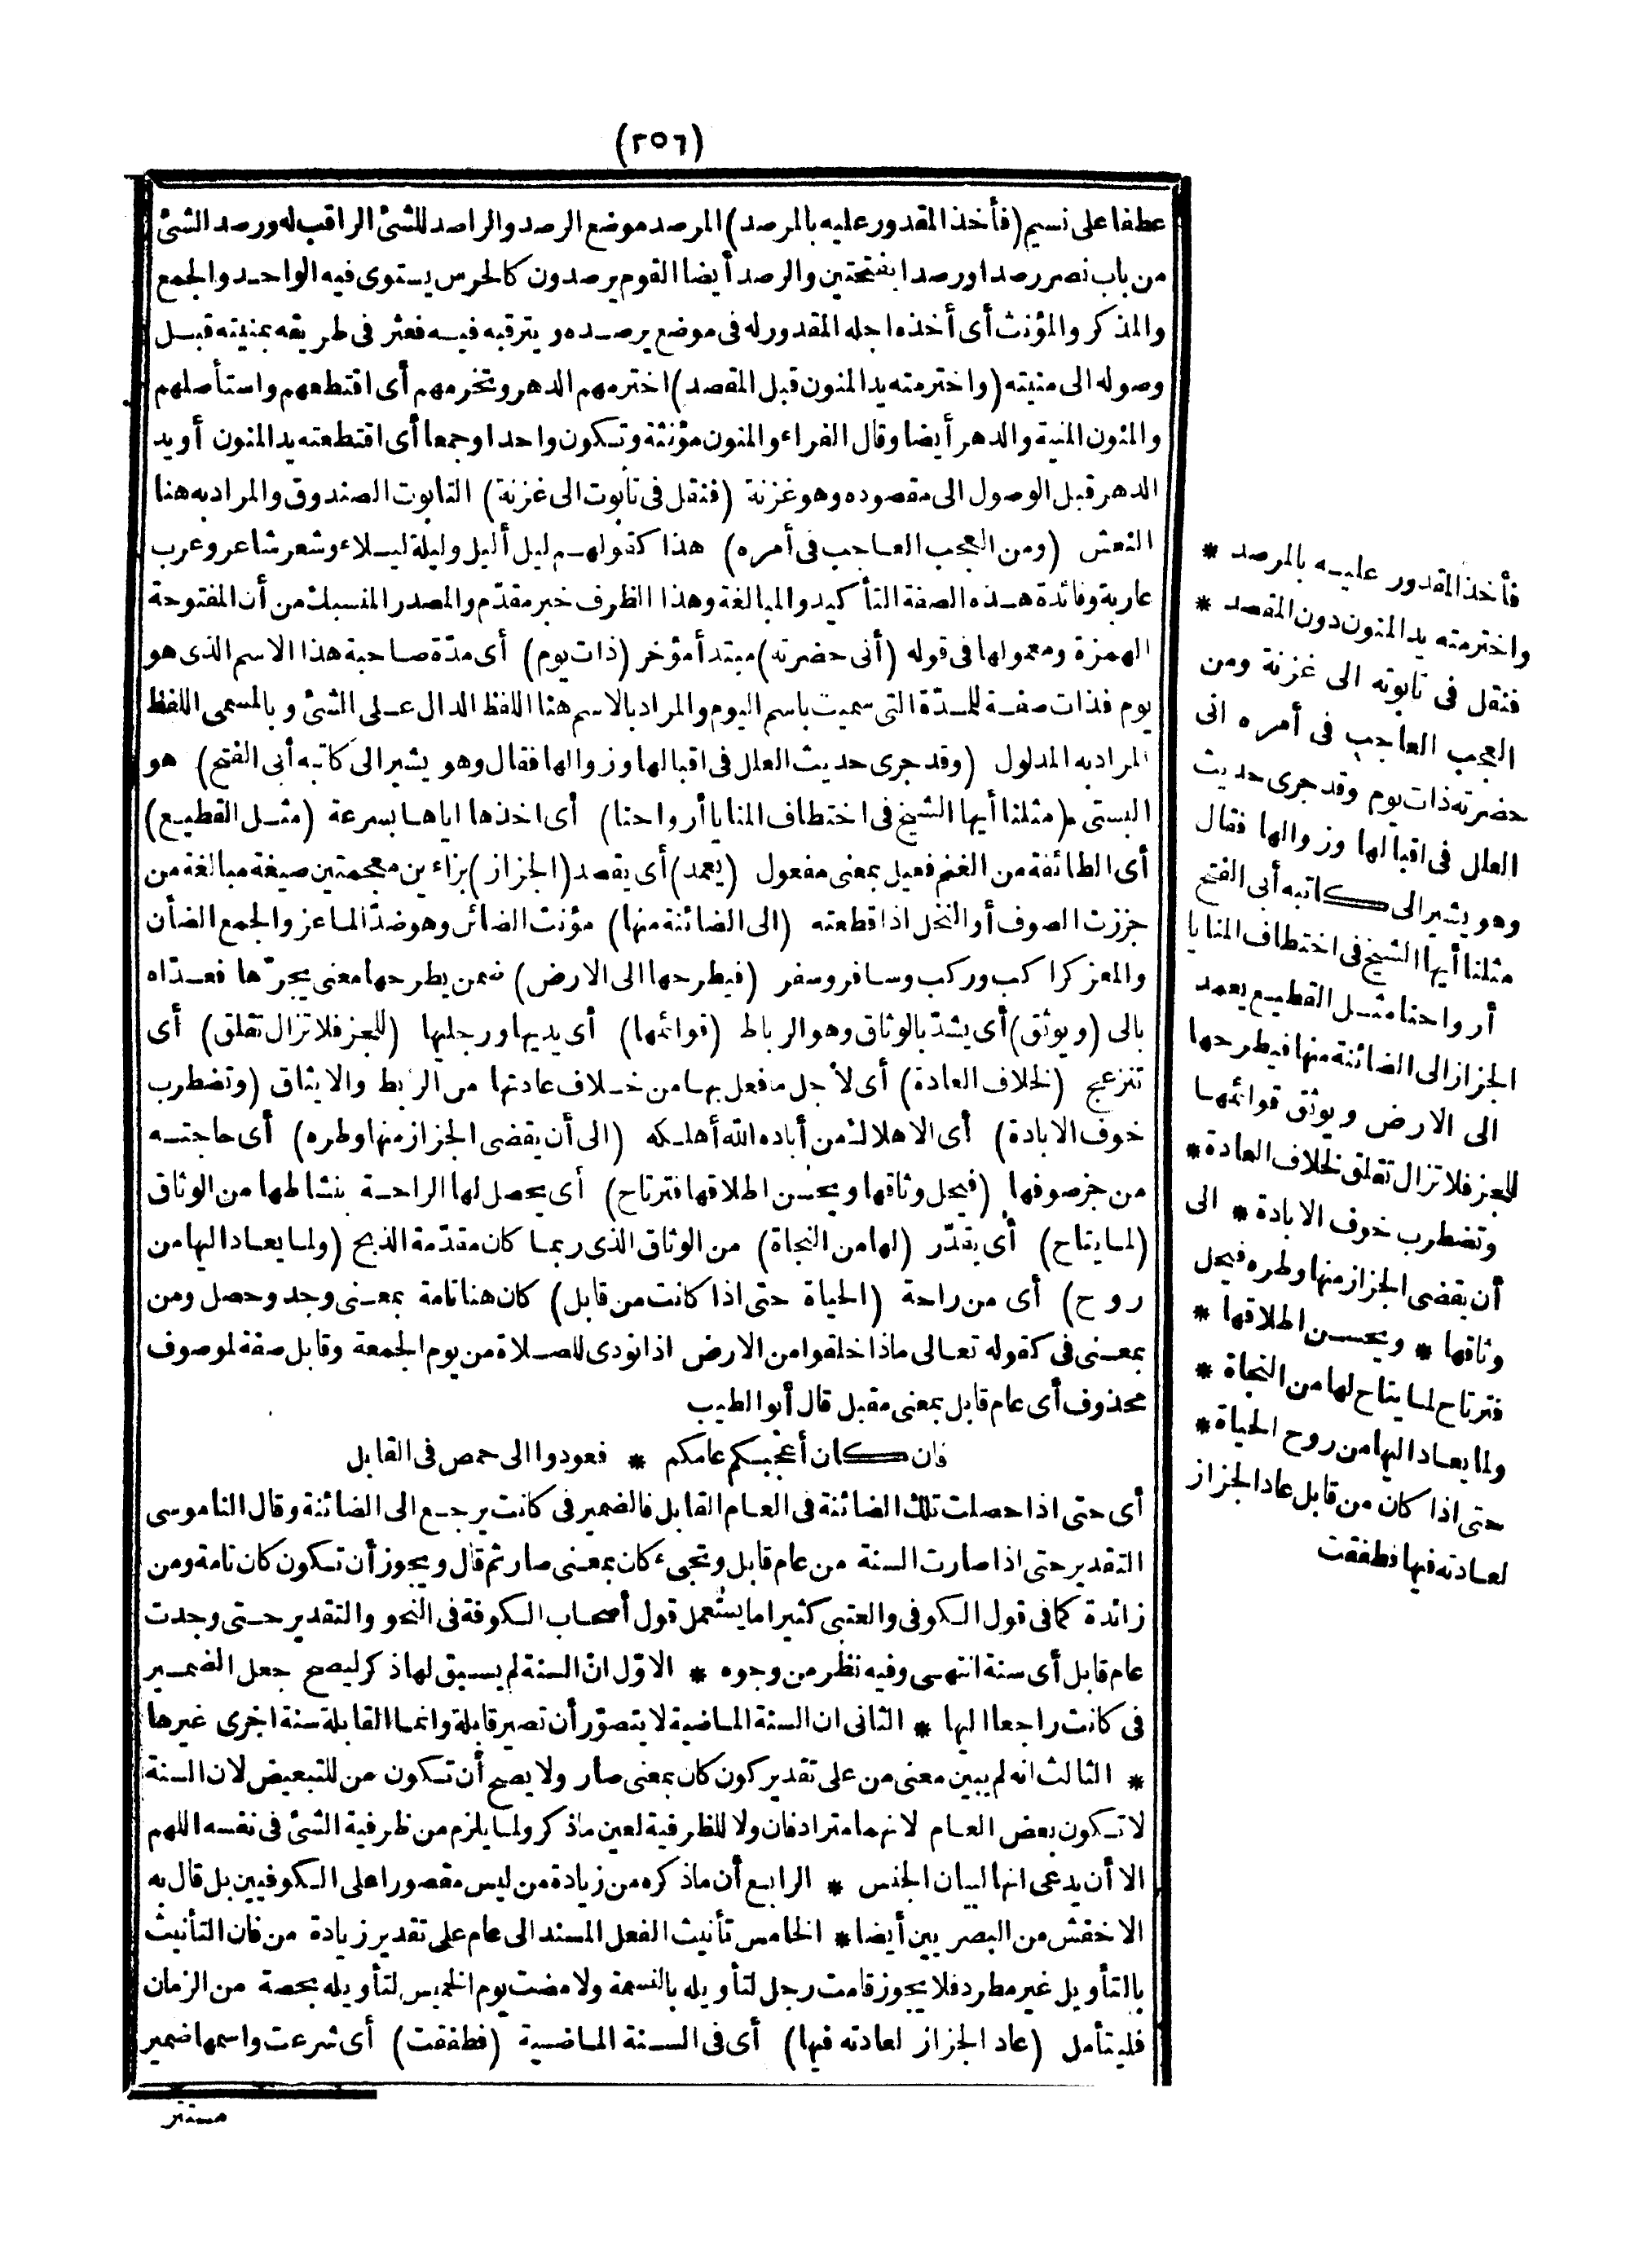 (٢٥٦)
عطفا على نسيم (فأخذ المقدور عليه بالمرصد) المرصد موضع الرصد والراصد للشئ الراقب له ورصد الشئ
من باب نصر رصدا ورصدا بفتحتين والرصد أيضا القوم يرصدون كالحرس يستوى فيه الواحد والجمع
والمذكر والمؤنث أى أخذه اجله المقدور له فى موضع يرصده ويترقبه فيه فعثر فى طريقه بمنيته قبل
وصوله الى منيته (واخترمته يد المنون قبل المقصد) اخترمهم الدهر وتخرمهم أى اقتطعهم واستأصلهم
والمنون المنية والدهر أيضا وقال الفراء والمنون مؤنثة وتكون واحدا وجمعا أى اقتطعته يد المنون أو يد
الدهر قبل الوصول الى مقصوده وهو غزنة (فنقل فى تابوت الى غزنة) التابوت الصندوق والمراد به هنا
النعش (ومن العجب العاجب فى أمره) هذا كقولهم ليل أليل وليلة ليلاء وشعر شاعر وعرب
عاربة وفائدة هذه الصفة التأكيد والمبالغة وهذا الظرف خبر مقدّم والمصدر المنسبك من أن المفتوحة
الهمزة ومعمولها فى قوله (أنى حضرته) مبتدأ مؤخر (ذات يوم) أى مدّة صاحبة هذا الاسم الذى هو
يوم فذات صفة للمدّة التى سميت باسم اليوم والمراد بالاسم هنا اللفظ الدال على الشئ وبالمسمى اللفظ
المراد به المدلول (وقد جرى حديث العلل فى اقبالها وزوالها فقال وهو يشير الى كاتبه أبى الفتح) هو
البستى (مثلنا أيها الشيخ فى اختطاف المنايا أرواحنا) أى اخذها اياها بسرعة (مثل القطيع)
أى الطائفة من الغنم فعيل بمعنى مفعول (يعمد) أى يقصد (الجزاز) بزاءين معجمتين صيغة مبالغة من
جززت الصوف أو النخل اذا قطعته (الى الضائنة منها) مؤنث الضائن وهو ضدّ الماعز والجمع الضأن
والمعز كراكب وركب وسافر وسفر (فيطرحها الى الارض) ضمن يطرحها معنى يجرّها فعدّاه
بالى (ويوثق) أى يشدّ بالوثاق وهو الرباط (قوائمها) أى يديها ورجليها (للجز فلا تزال تقلق) أى
تنزعج (لخلاف العادة) أى لأجل ما فعل بها من خلاف عادتها من الربط والايثاق (وتضطرب
خوف الابادة) أى الاهلاك من أباده الله أهلكه (الى أن يقضى الجزاز منها وطره) أى حاجته
من جز صوفها (فيحل وثاقها ويحسن اطلاقها فترتاح) أى يحصل لها الراحة بنشاطها من الوثاق
(لما يتاح) أى يقدّر (لها من النجاة) من الوثاق الذى ربما كان مقدّمة الذبح (ولما يعاد اليها من
روح) أى من راحة (الحياة حتى اذا كانت من قابل) كان هنا تامة بمعنى وجد وحصل ومن
بمعنى فى كقوله تعالى ماذا خلقوا من الارض اذا نودى للصلاة من يوم الجمعة وقابل صفة لموصوف
محذوف أى عام قابل بمعنى مقبل قال أبو الطيب
فان كان أعجبكم عامكم * فعودوا الى حمص فى القابل
أى حتى اذا حصلت تلك الضائنة فى العام القابل فالضمير فى كانت يرجع الى الضائنة وقال الناموسى
التقدير حتى اذا صارت السنة من عام قابل وتجىء كان بمعنى صار ثم قال ويجوز أن تكون كان تامة ومن
زائدة كما فى قول الكوفى والعتبى كثيرا ما يستعمل قول أصحاب الكوفة فى النحو والتقدير حتى وجدت
عام قابل أى سنة انتهى وفيه نظر من وجوه * الاوّل انّ السنة لم يسبق لها ذكر ليصح جعل الضمير
فى كانت راجعا اليها * الثانى ان السنة الماضية لا يتصوّر أن تصير قابلة وانما القابلة سنة اخرى غيرها
* الثالث انه لم يبين معنى من على تقدير كون كان بمعنى صار ولا يصح أن تكون من للتبعيض لان السنة
لا تكون بعض العام لانهما مترادفان ولا للظرفية لعين ما ذكر ولما يلزم من ظرفية الشئ فى نفسه اللهم
الا أن يدعى انها لبيان الجنس * الرابع أن ما ذكره من زيادة من ليس مقصورا على الكوفيين بل قال به
الاخفش من البصريين أيضا * الخامس تأنيث الفعل المسند الى عام على تقدير زيادة من فان التأنيث
بالتأويل غير مطرد فلا يجوز قامت رجل لتأويله بالنسمة ولا مضت يوم الخميس لتأويله بحصة من الزمان
فليتأمل (عاد الجزاز لعادته فيها) أى فى السنة الماضية (فطفقت) أى شرعت واسمها ضمير
مستتر
فأخذ المقدور عليه بالمرصد *
واخترمته يد المنون دون المقصد *
فنقل فى تابوته الى غزنة ومن
العجب العاجب فى أمره انى
حضرته ذات يوم وقد جرى حديث
العلل فى اقبالها وزوالها فقال
وهو يشير الى كاتبه أبى الفتح
مثلنا أيها الشيخ فى اختطاف المنايا
أرواحنا مثل القطيع يعمد
الجزاز الى الضائنة منها فيطرحها
الى الارض ويوثق قوائمها
للجز فلا تزال تقلق لخلاف العادة *
وتضطرب خوف الابادة * الى
أن يقضى الجزاز منها وطره فيحل
وثاقها * ويحسن اطلاقها *
فترتاح لما يتاح لها من النجاة *
ولما يعاد اليها من روح الحياة *
حتى اذا كان من قابل عاد الجزاز
لعادته فيها فطفقت